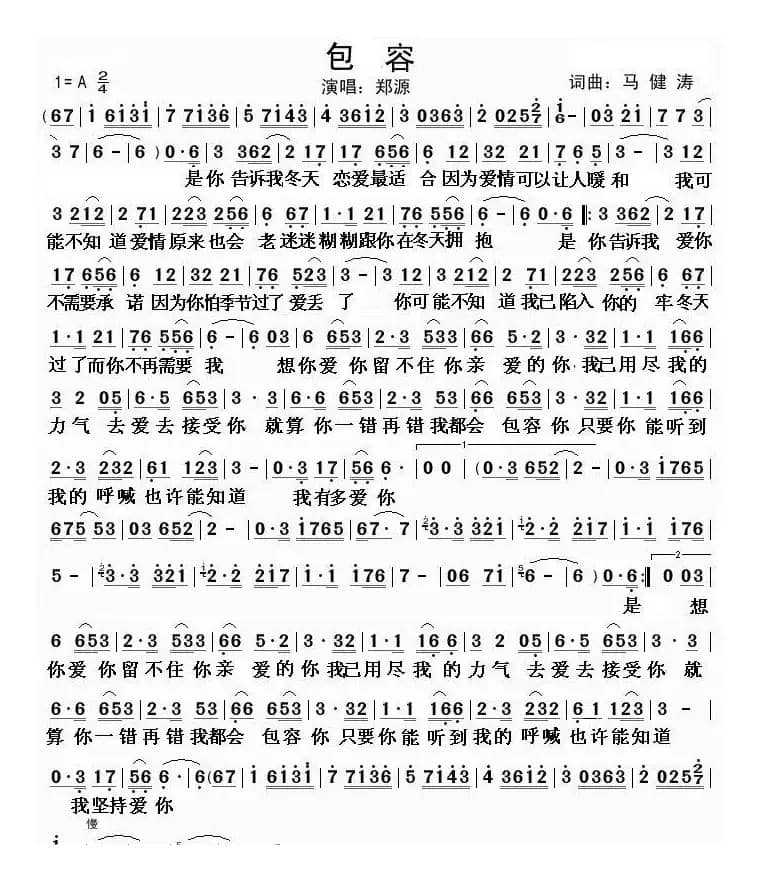 包 容
1=A 2/4 演唱：郑源 词曲：马 健 涛
(67 | 1 6131 | 7 7136 | 5 7143 | 4 3612 | 3 0363 | 2 0257 | 6 - | 03 21 | 7 7 3 |
3 7 | 6 - | 6 ) 0·6 | 3 362 | 2 17 | 17 656 | 6 12 | 32 21 | 7 6 5 | 3 - | 3 12 |
是你 告诉我冬天 恋爱最适 合因为爱情可以让人暖和 我可
3 212 | 2 71 | 223 256 | 6 67 | 1·1 21 | 76 556 | 6 - | 6 0·6 |: 3 362 | 2 17 |
能不知 道爱情原来也会 老迷迷糊糊跟你在冬天拥 抱 是 你告诉我 爱你
17 656 | 6 12 | 32 21 | 76 523 | 3 - | 3 12 | 3 212 | 2 71 | 223 256 | 6 67 |
不需要承 诺 因为你怕季节过了 爱丢 了 你可能不知 道我已陷入 你的 牢冬天
1·1 21 | 76 556 | 6 - | 6 03 | 6 653 | 2·3 533 | 66 5·2 | 3·32 | 1·1 166 |
过了而你不再需要 我 想你爱 你留不住 你亲 爱的你·我已用尽我的
3 2 05 | 6·5 653 | 3·3 | 6·6 653 | 2·3 53 | 66 653 | 3·32 | 1·1 166 |
力气 去爱去接受你 就算 你一错再错我都会 包容你 只要你 能听到
2·3 232 | 61 123 | 3 - | 0·3 17 | 56 6· | 0 0 | (0·3 652 | 2 - | 0·3 1765 |
1
我的 呼喊 也许能知道 我有多爱 你
675 53 | 03 652 | 2 - | 0·3 1765 | 67· 7 | 3·3 321 | 2·2 217 | 1·1 176 |
5 - | 3·3 321 | 2·2 217 | 1·1 176 | 7 - | 06 71 | 6 - | 6 ) 0·6 :| 0 03 |
2
是 想
6 653 | 2·3 533 | 66 5·2 | 3·32 | 1·1 16 6 | 3 2 05 | 6·5 653 | 3·3 |
你爱 你留不住 你亲 爱的你 我已用尽我 的 力气 去爱去接受你 就
6·6 653 | 2·3 53 | 66 653 | 3·32 | 1·1 166 | 2·3 232 | 6 1 123 | 3 - |
算 你一错再错我都会 包容你 只要你能听到我的 呼喊也许能知道
0·3 17 | 56 6· | 6 (67 | 1 6131 | 7 7136 | 5 7143 | 4 3612 | 3 0363 | 2 0257 |
我坚持爱 你
慢